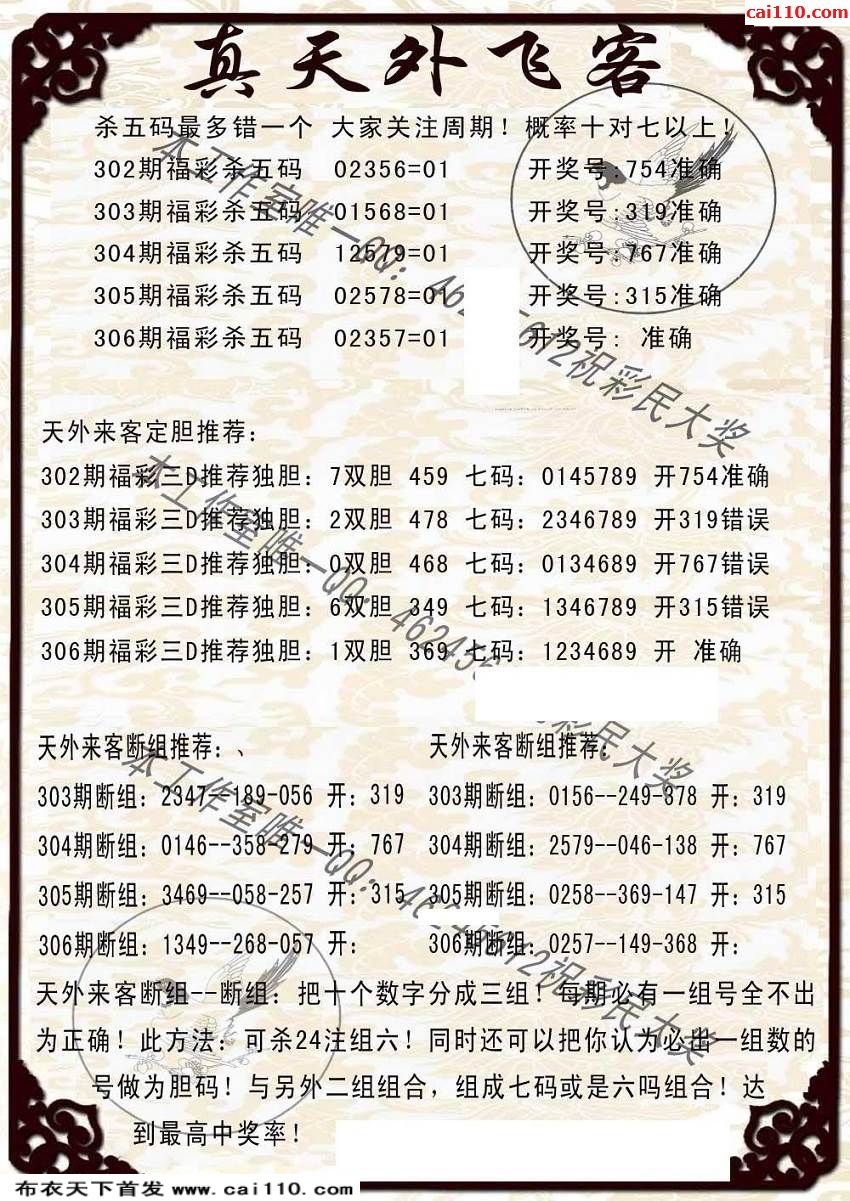 cai110.com
真天外飞客
杀五码最多错一个 大家关注周期！概率十对七以上！
302期福彩杀五码 02356=01 开奖号:754准确
303期福彩杀五码 01568=01 开奖号:319准确
304期福彩杀五码 12579=01 开奖号:767准确
305期福彩杀五码 02578=01 开奖号:315准确
306期福彩杀五码 02357=01 开奖号: 准确
天外来客定胆推荐：
302期福彩三D推荐独胆：7双胆 459 七码：0145789 开754准确
303期福彩三D推荐独胆：2双胆 478 七码：2346789 开319错误
304期福彩三D推荐独胆：0双胆 468 七码：0134689 开767错误
305期福彩三D推荐独胆：6双胆 349 七码：1346789 开315错误
306期福彩三D推荐独胆：1双胆 369 七码：1234689 开 准确
天外来客断组推荐：、
303期断组：2347--189-056 开：319
304期断组：0146--358-279 开：767
305期断组：3469--058-257 开：315
306期断组：1349--268-057 开：
天外来客断组推荐：
303期断组：0156--249-378 开：319
304期断组：2579--046-138 开：767
305期断组：0258--369-147 开：315
306期断组：0257--149-368 开：
天外来客断组--断组：把十个数字分成三组！每期必有一组号全不出
为正确！此方法：可杀24注组六！同时还可以把你认为必出一组数的
号做为胆码！与另外二组组合，组成七码或是六吗组合！达
到最高中奖率！
本工作室唯一QQ：462
612祝彩民大奖
本工作室唯一QQ：462456
彩民大奖
本工作室唯一QQ：462
612祝彩民大奖
布衣天下首发 www.cai110.com